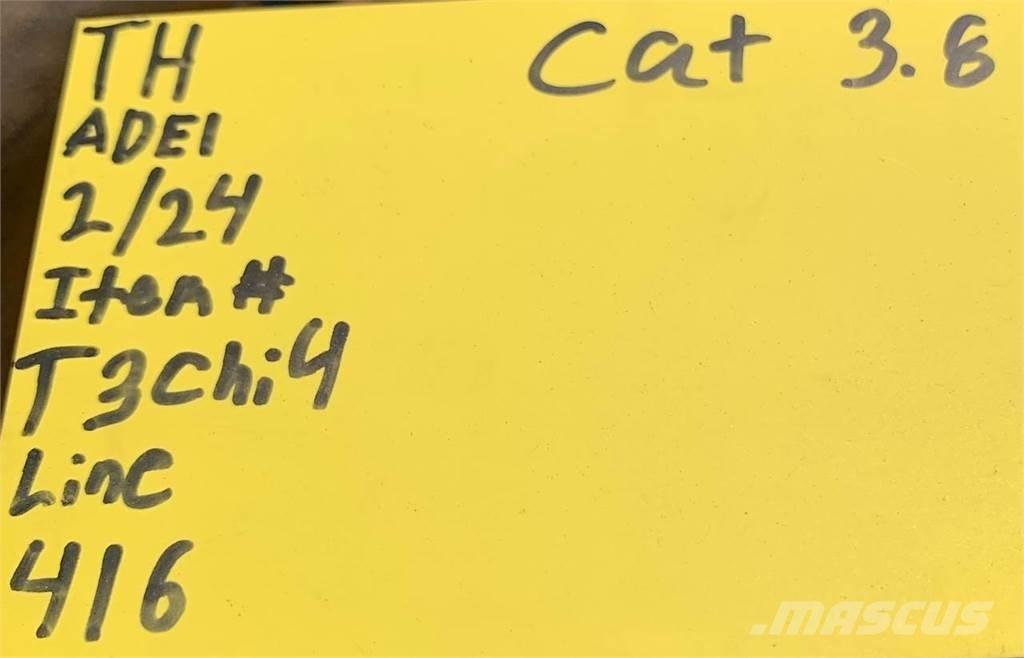 TH
Cat 3.8
ADE1
2/24
Item #
T3Chi4
Line
416
.MASCUS